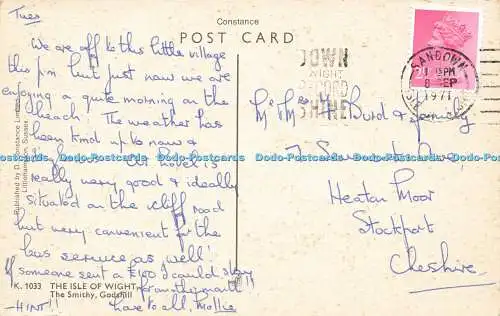 Constance
POST CARD
Tues
We are off to this little village
this pm but just now we are
enjoying a quite morning on the
beach. The weather has
been kind up to now &
Our hotel is
really very good & ideally
situated on the cliff road
but very convenient for the
bus service as well!
If someone sent a £100 I could stay
for another month!!
-HINT!! Love to all, Mollie
K. 1033 THE ISLE OF WIGHT
The Smithy, Godshill
Published by D. Constance Limited,
Littlehampton, Sussex
SANDOWN
PM
8 SEP
1971
DOWN
WIGHT
RECORD
SHINE
Mr Mrs H Burd & family
7
Heaton Moor
Stockport
Cheshire.
Dodo-Postcards.com